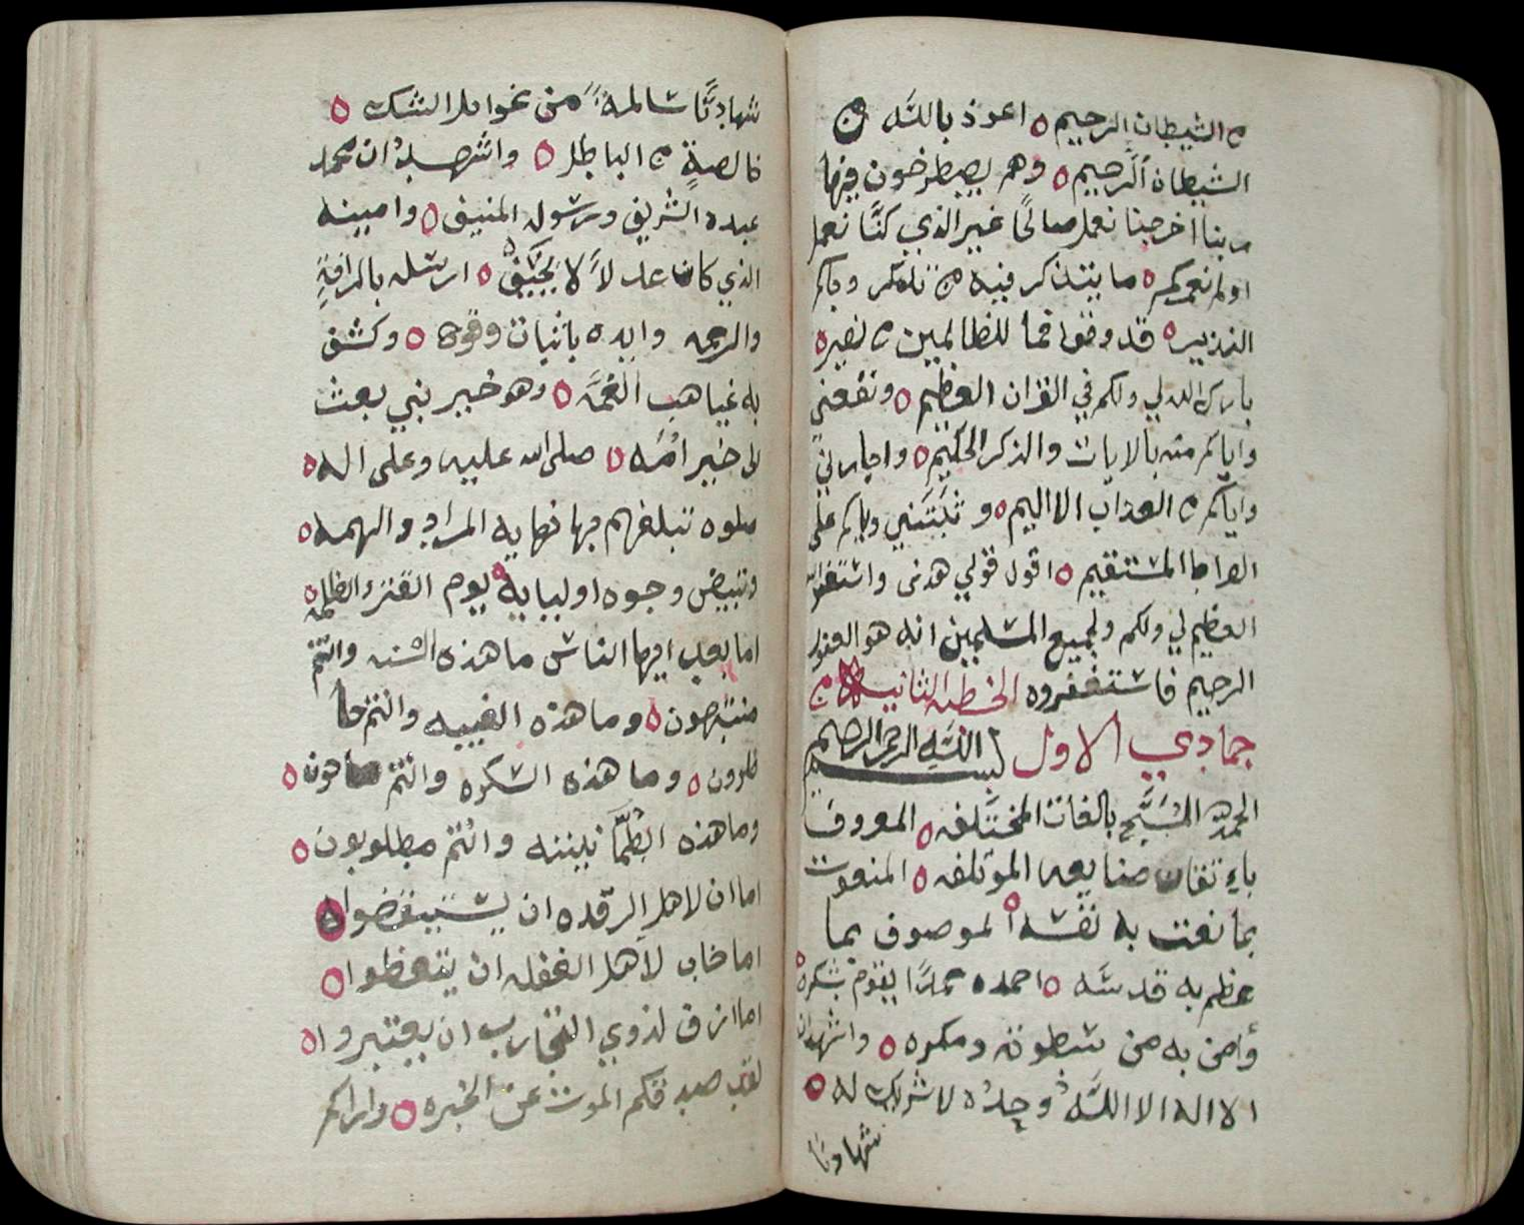 من الشيطان الرجيم ه اعوذ بالله من
الشيطان الرجيم ه وهم يصطرخون فيها
ربنا اخرجنا نعمل صالحًا غير الذي كنَّا نعمل
اولم نعمركم ه ما يتذكر فيه من تذكر وجاكم
النذير ه قد وقوا فما للظالمين من نصير ه
بارك الله لي ولكم في القران العظيم ه ونفعني
واياكم منه بالايات والذكر الحكيم ه واجارني
واياكم من العذاب الاليم ه وثبتني واياكم على
الصراط المستقيم ه اقول قولي هدى واستغفر الله
العظيم لي ولكم ولجميع المسلمين انه هو الغفور
الرحيم فاستغفروه الخطبه الثانيه من
جمادي الاول بسم الله الرحمن الرحيم
الحمد لله المُسَبَّح بالغات المختَلفه ه المعروف
باتقان صنايعه الموتلفه ه المنعوت
بما نعت به نفسه ه الموصوف بما
عظم به قدسَه ه احمده حمدًا يقوم بشكره ه
وأمن به من سطوته ومكره ه واشهد ان
لا اله الا اللَّهُ وحدُه لا شريك له ه
شهادتا
شهادتًا سالمةً من غوامل الشك ه
خالصةٍ من الباطل ه واشهدُ ان محمد
عبده الشريف ورسوله المنيف ه وامينه
الذي كان عدلاً لا يحَيَفُ ه ارسله بالرافةِ
والرحمه وايده باثبات وقوه ه وكشف
به غياهب الغُمَّه ه وهو خير نبي بعث
الى خير اُمَّه ه صلى الله عليه وعلى اله ه
صلوه تبلغهم بها نهايه المراد والهمه ه
وتبيض وجوه اوليايه ه يوم القتره والظلمه ه
اما بعد ايها الناس ما هذه السنه وانتم
منتبهون ه وما هذه الغيبه وانتم حا
ظرون ه وما هذه السكره وانتم صاحون ه
وما هذه الطُمَّانينه وانتم مطلوبون ه
اما ان لاهل الرقده ان يستيقضوا ه
اما حان لاهل الغفله ان يتعظوا ه
اما ازف لذوي التجارب ان يعتبروا ه
لقد صدقكم الموت عن الخبره ه واراكم